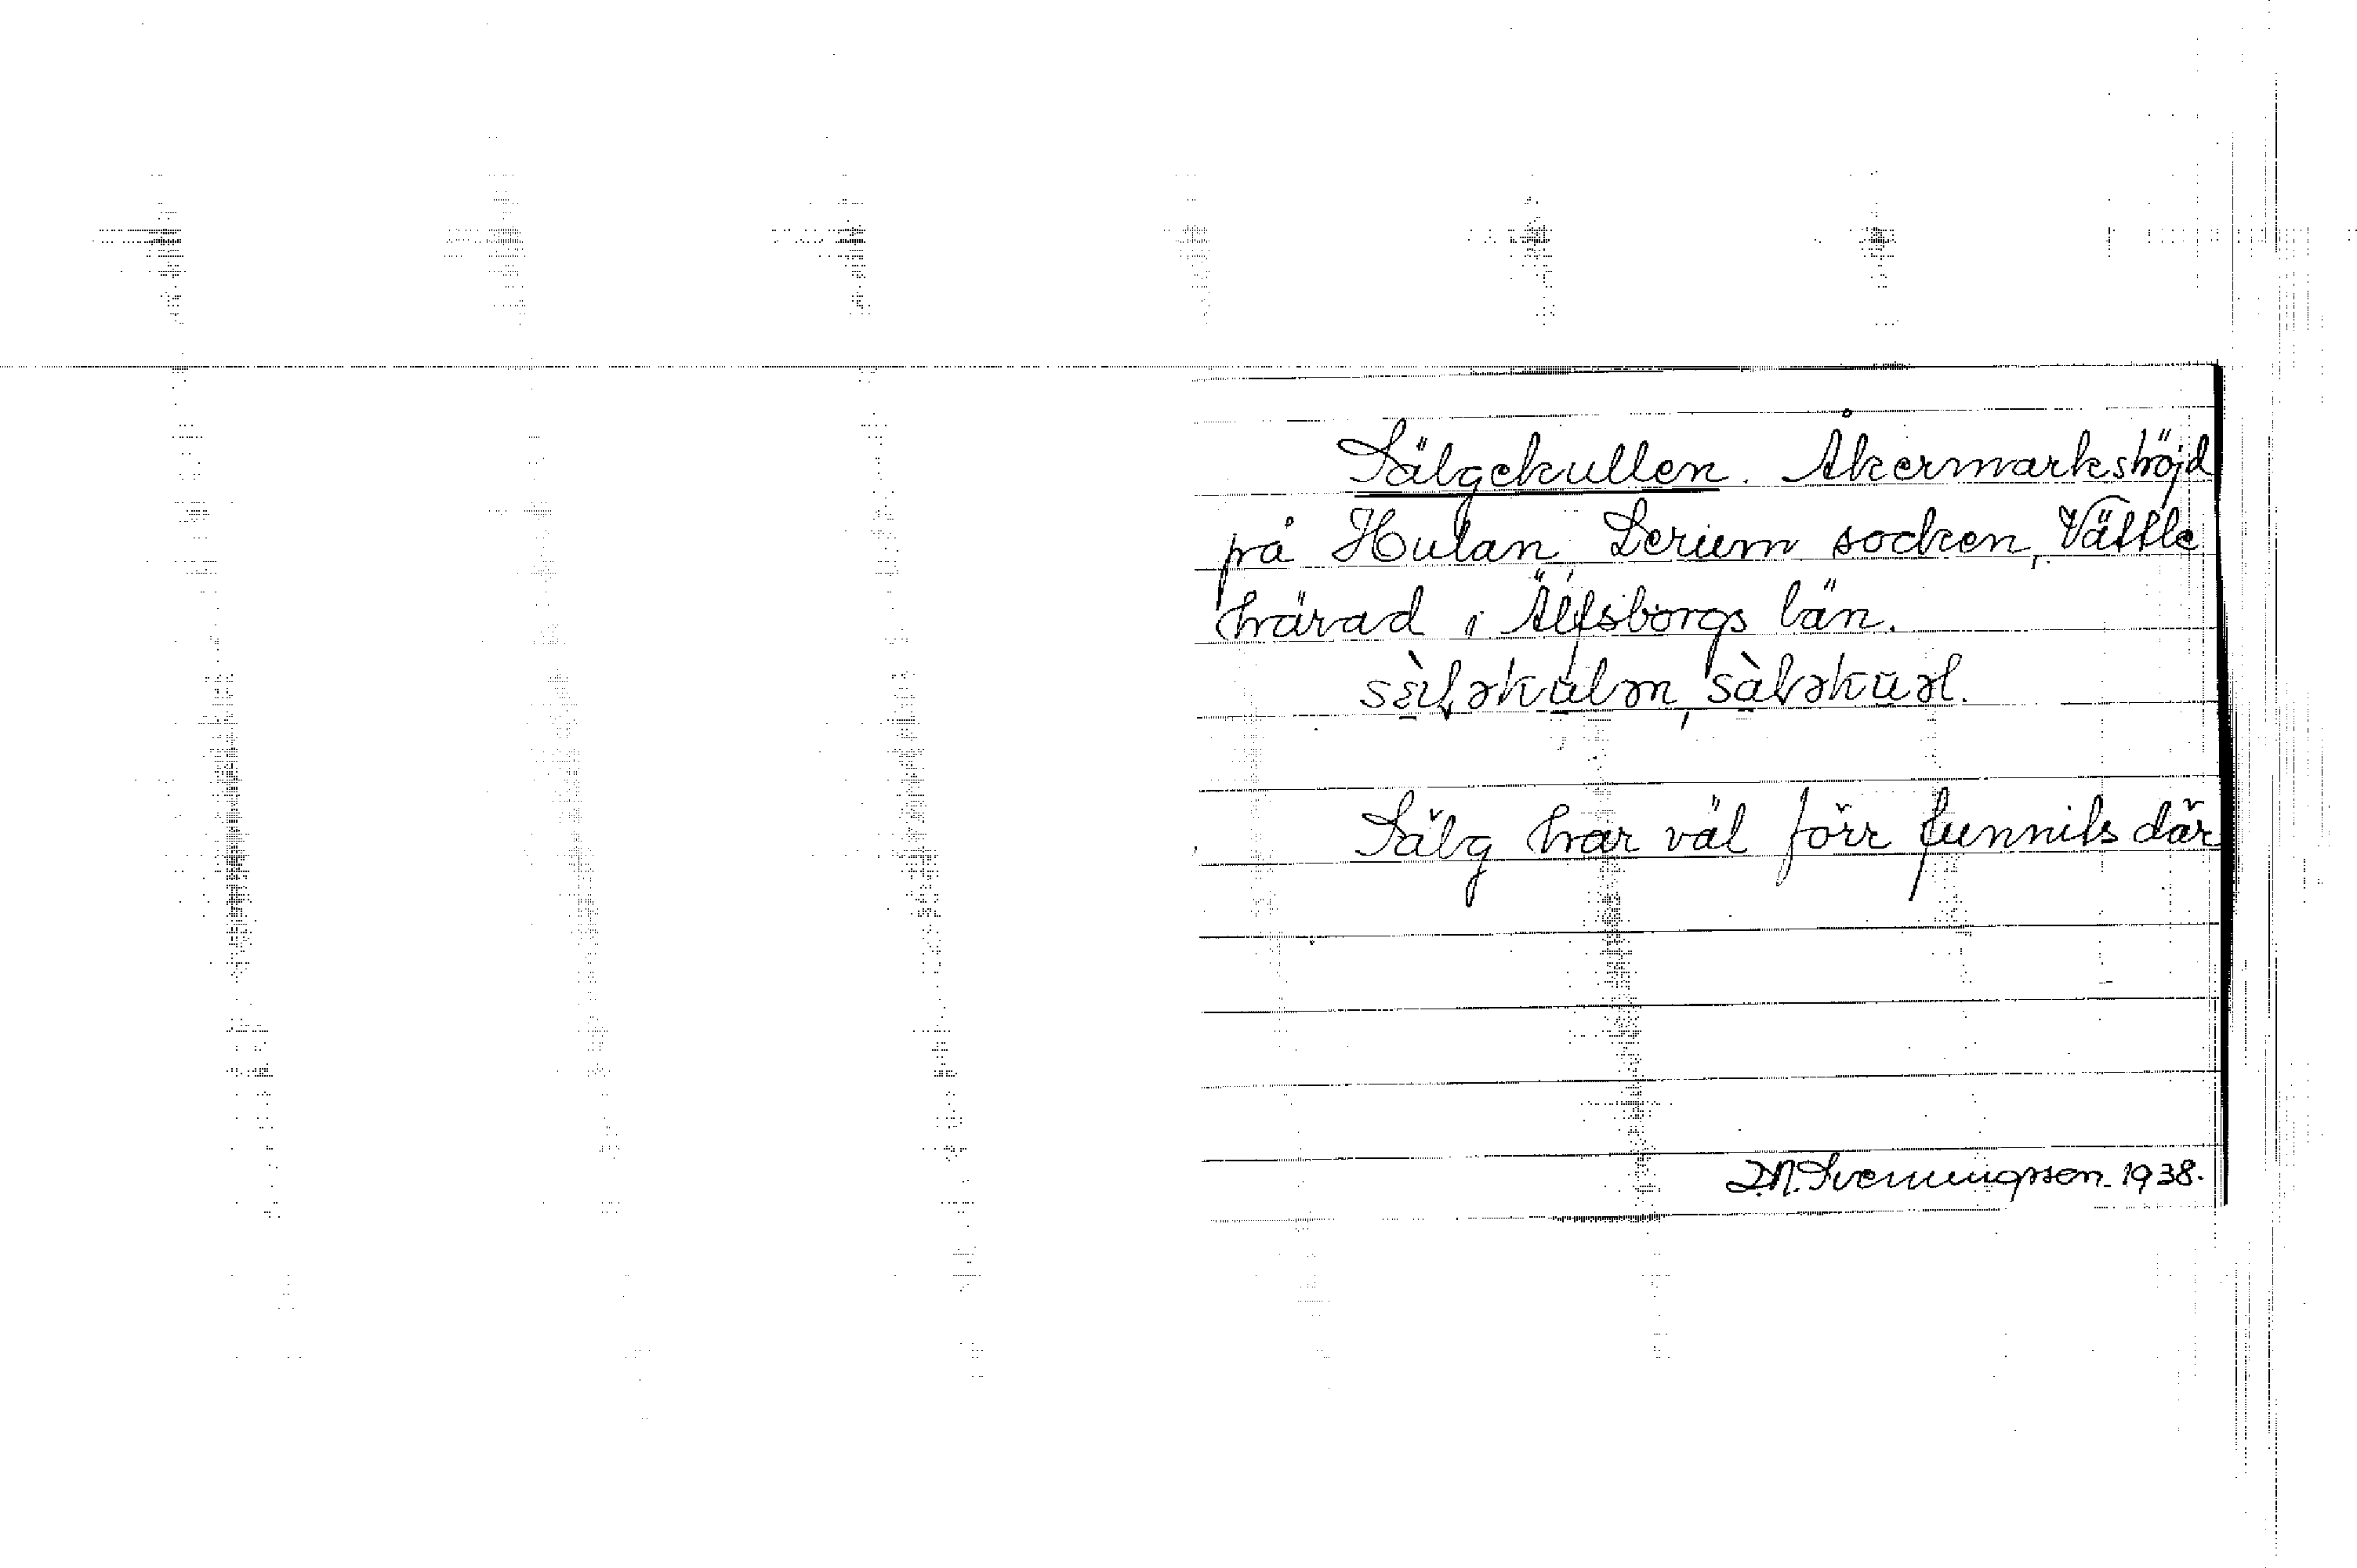 Sälgekullen. Åkermarkshöjd
på Hulan, Lerum socken, Vättle
härad i Älfsborgs län.
Sälg har väl förr funnits där
D.N. Svenningsson. 1938.